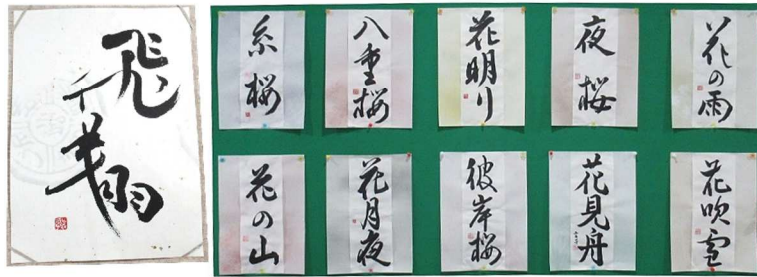 飛翔
糸桜
八重桜
花明り
夜桜
花の雨
花の山
花月夜
彼岸桜
花見舟
花吹雪